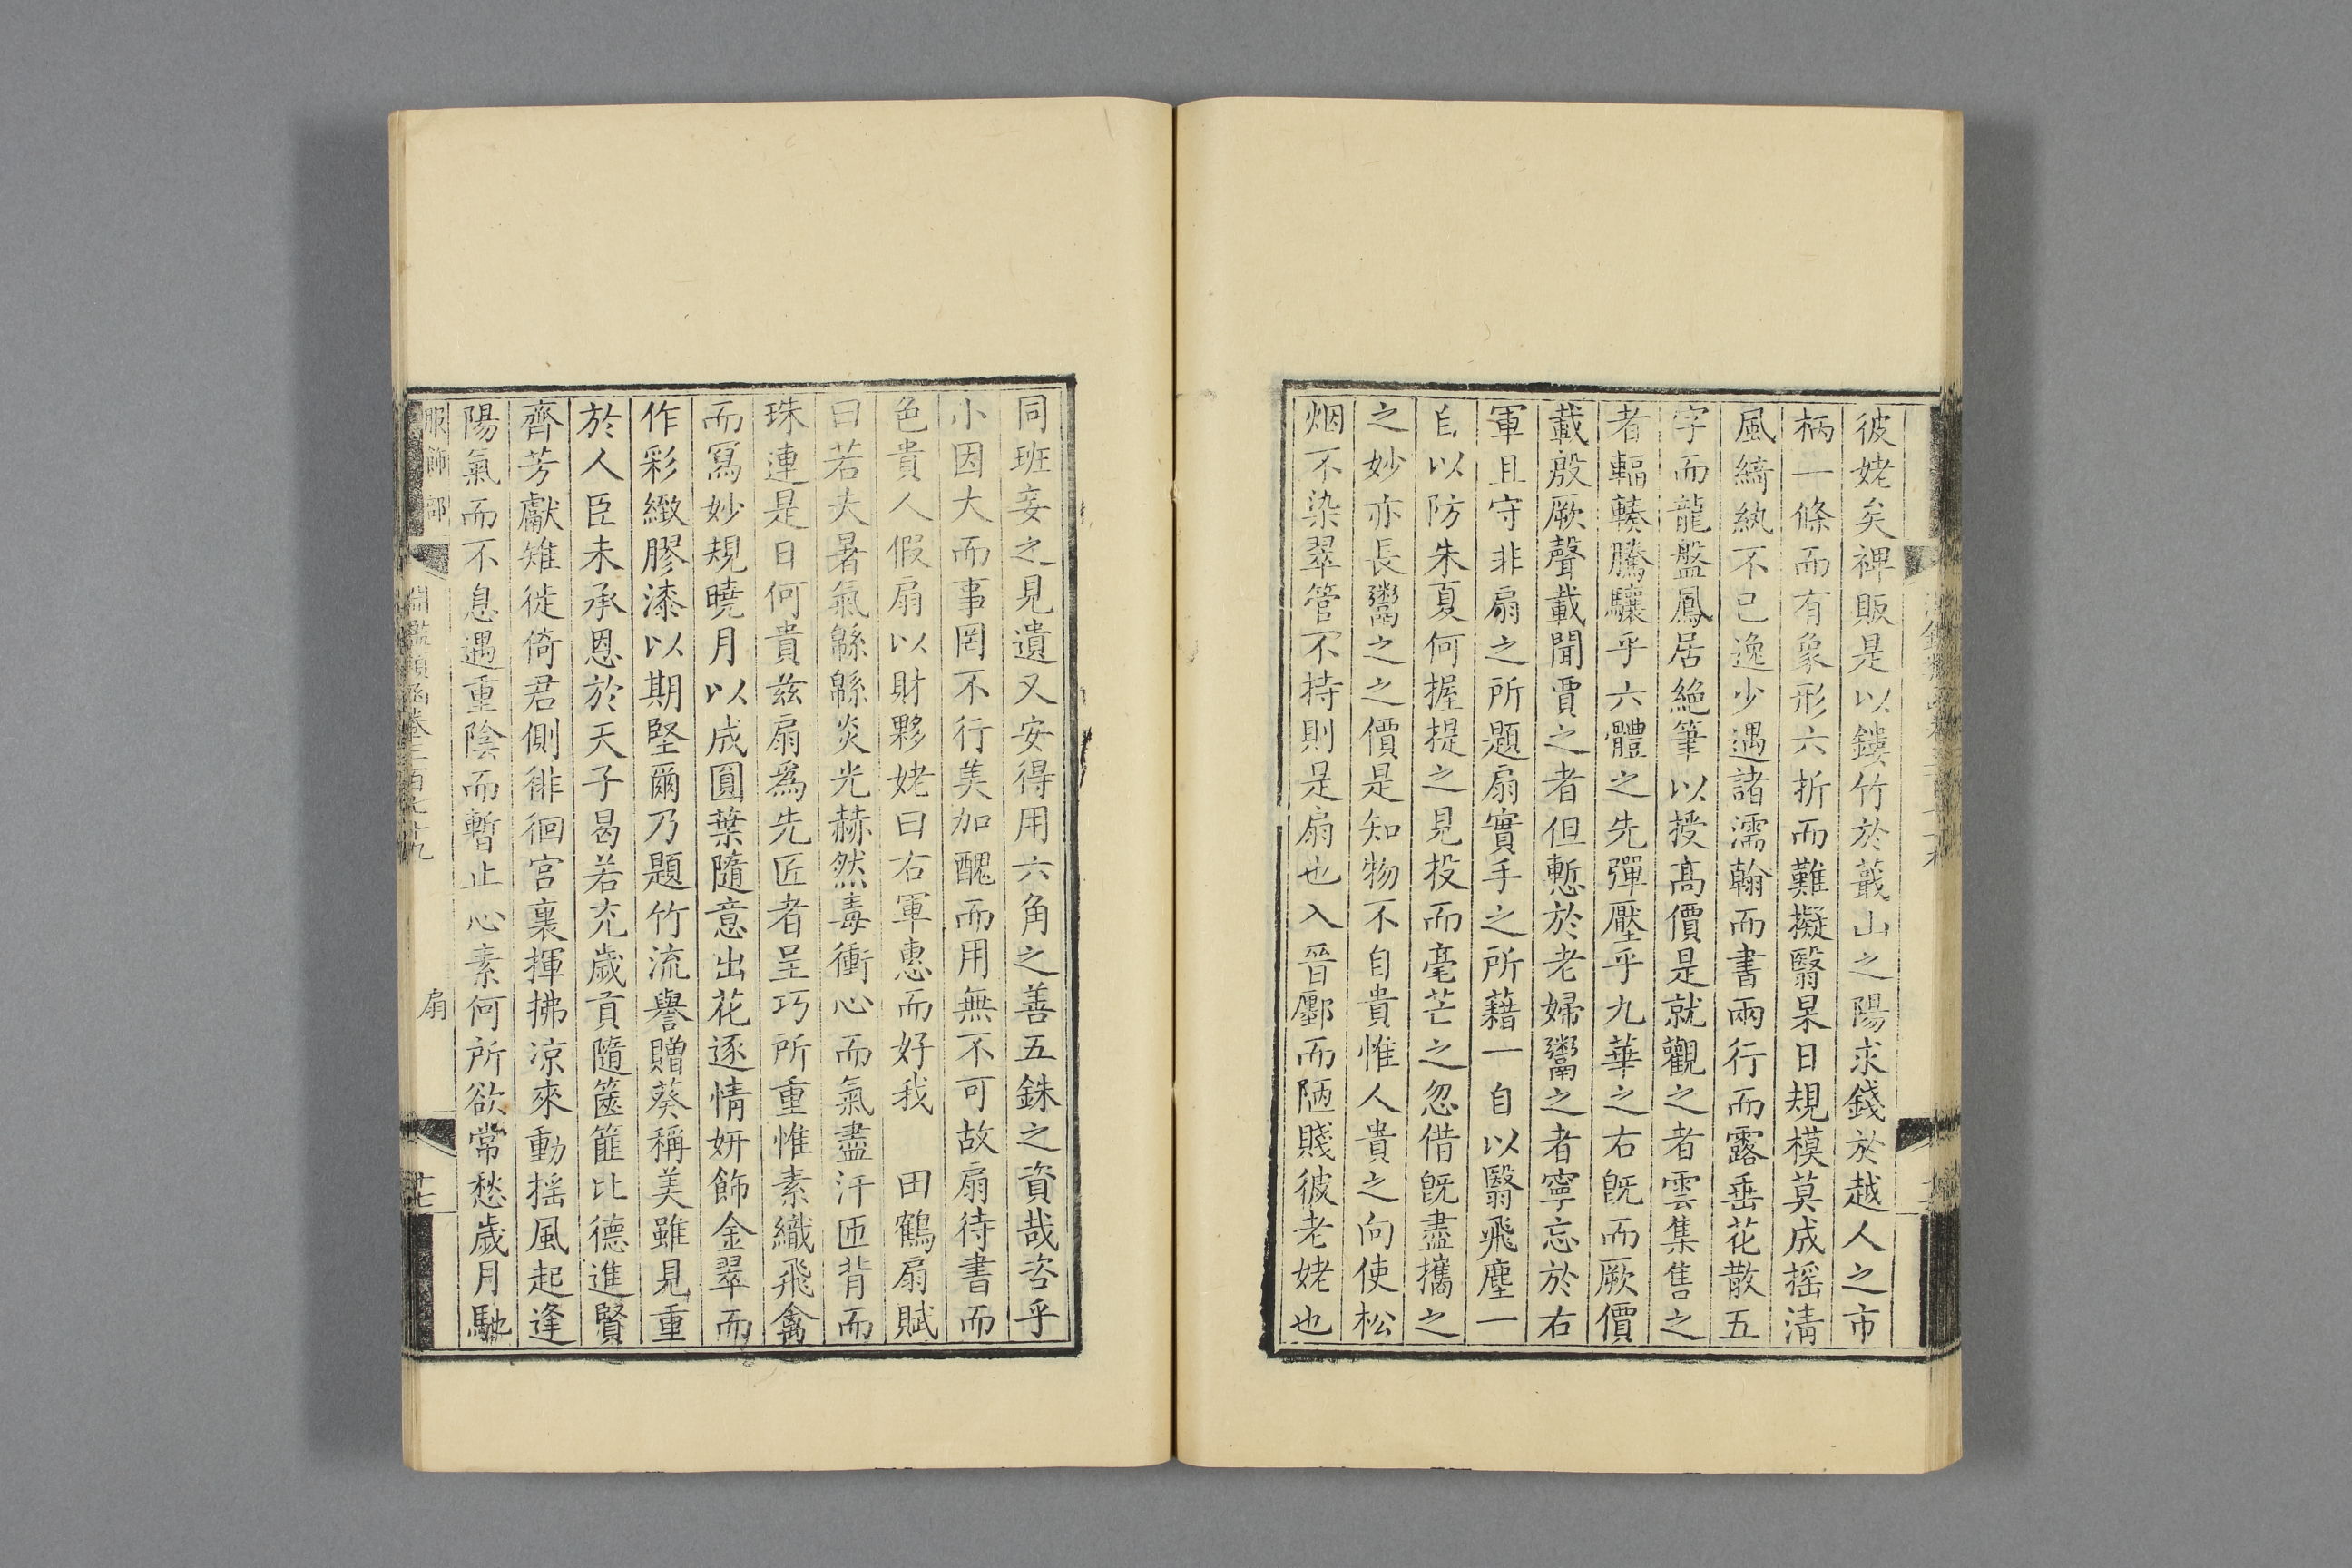 彼姥矣裨販是以鏤竹於蕺山之陽求錢於越人之市
柄一條而有象形六折而難擬翳杲日規模莫成摇淸
風綺紈不已逸少遇諸濡翰而書兩行而露垂花散五
字而龍盤鳳居絶筆以授髙價是就觀之者雲集售之
者輻輳騰驤乎六體之先彈壓乎九華之右旣而厥價
載殷厥聲載聞賈之者但慙於老婦鬻之者寧忘於右
軍且守非扇之所題扇實手之所藉一自以翳飛塵一
自以防朱夏何握提之見投而毫芒之忽借旣盡攜之
之妙亦長鬻之之價是知物不自貴惟人貴之向使松
烟不染翠管不持則是扇也入晉鄽而陋賤彼老姥也
同班妾之見遺又安得用六角之善五銖之資哉咨乎
小因大而事罔不行美加醜而用無不可故扇待書而
色貴人假扇以財夥姥曰右軍惠而好我　田鶴扇賦
曰若夫暑氣緜緜炎光赫然毒衝心而氣盡汗匝背而
珠連是日何貴兹扇爲先匠者呈巧所重惟素織飛禽
而冩妙規曉月以成圓葉隨意出花逐情妍飾金翠而
作彩緻膠漆以期堅爾乃題竹流譽贈葵稱美雖見重
於人臣未承恩於天子曷若充歲貢隨篋篚比德進賢
齊芳獻雉徙倚君側徘徊宫裏揮拂凉來動摇風起逢
陽氣而不息遇重陰而暫止心素何所欲常愁歲月馳
服飾部　淵鑑類函卷三百七十九　扇　十七